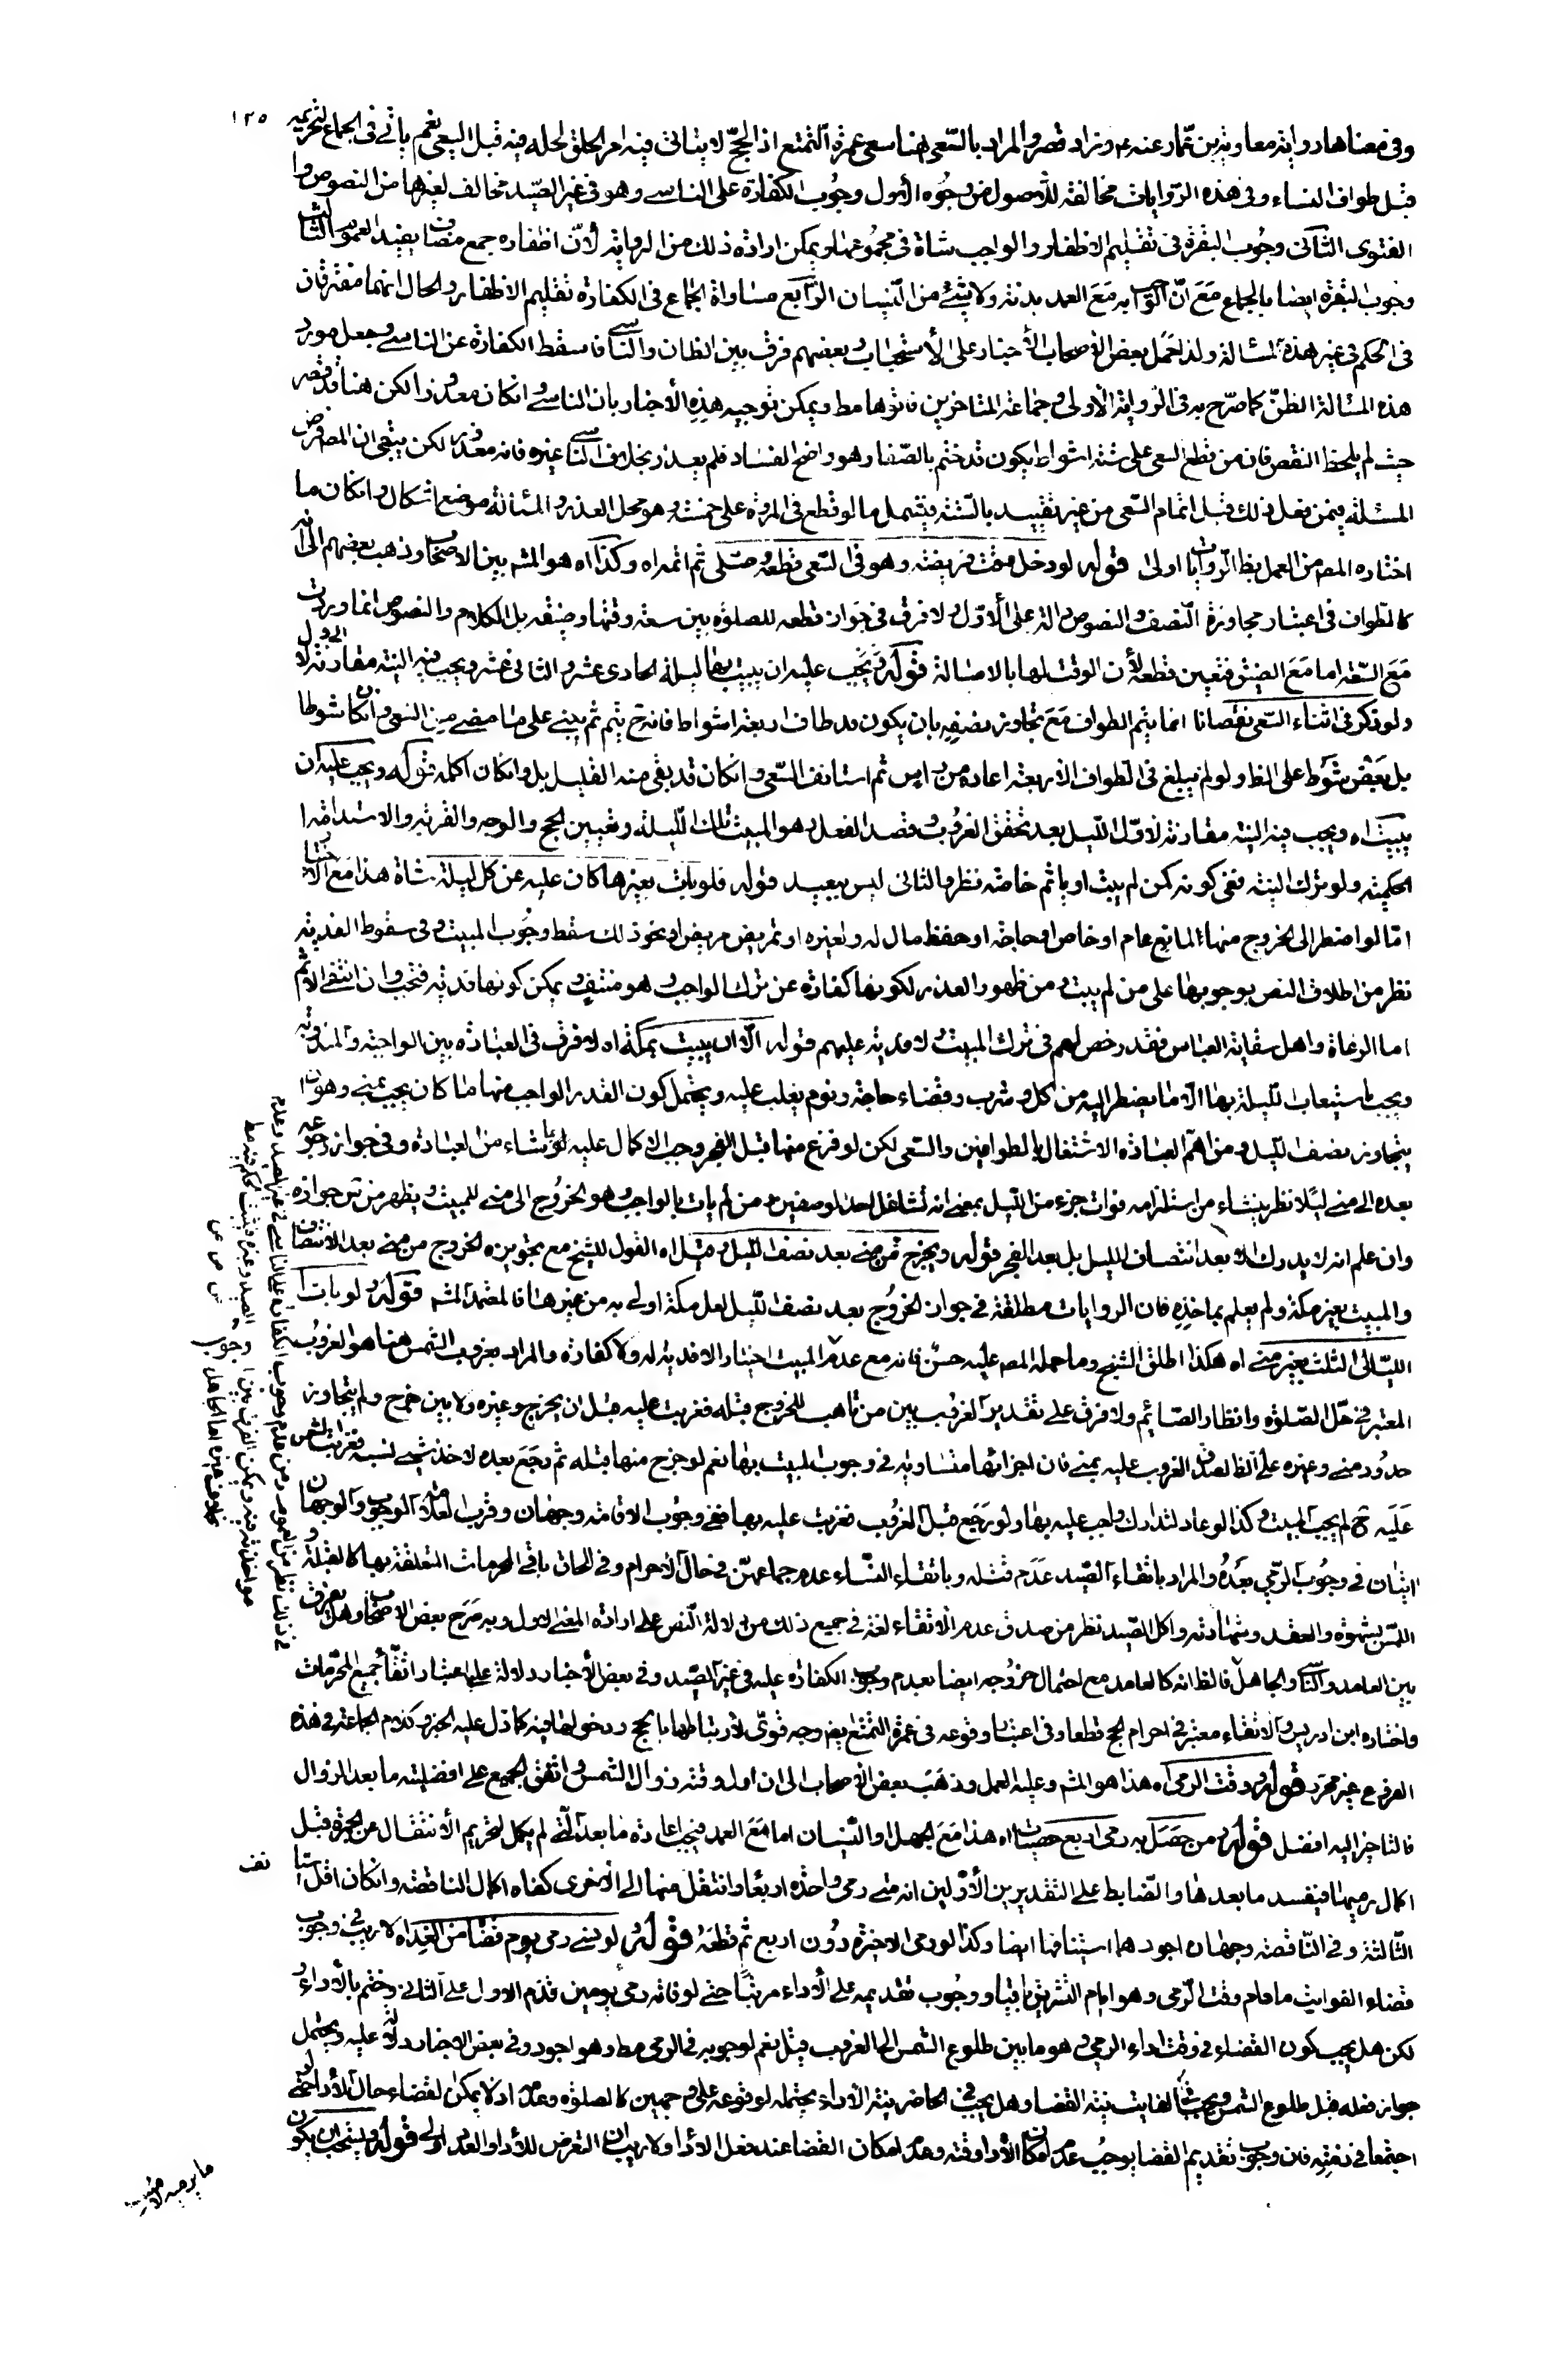 ١٢٥
وفى معناها رواية معاوية بن عمار عنه ع وزاد قصر والمراد بالسعى هنا سعى عمرة التمتع اذ الحج لا يتاتى فيه امر الحلق لحله فيه قبل السعى نعم ياتى فى الجماع لتحريمه
قبل طواف النساء وفى هذه الروايات مخالفة للاصول من وجوه الاول وجوب الكفارة على الناسى وهو فى غير الصيد مخالف لغيرها من النصوص و
الفتوى الثانى وجوب البقرة فى تقليم الاظفار والواجب شاة فى مجموعها ويمكن ارادة ذلك من الرواية لان اظفاره جمع مضاف يفيد العموم الثالث
وجوب البقرة ايضا بالجماع مع ان الواجب به مع العمد بدنة ولا شئ مع النسيان الرابع مساواة الجماع فى الكفارة تقليم الاظفار والحال انهما مفترقان
فى الحكم فى غير هذه المسالة ولذا حمل بعض الاصحاب الاخبار على الاستحباب وبعضهم فرق بين الظان والناسى فاسقط الكفارة عن الناسى وجعل مورد
هذه المسالة الظن كما صرح به فى الرواية الاولى وجماعة المتاخرين قالوها مط ويمكن توجيه هذه الاخبار بان الناسى وان كان معذورا لكن هنا قد قصر
حيث لم يلحظ النقص فان من قطع السعى على ستة اشواط يكون قد ختم بالصفا وهو واضح الفساد فلم يعذر بخلاف الناسى غيره فانه معذور لكن يبقى ان المص فرض
المسئلة فيمن فعل ذلك قبل اتمام السعى من غير تقييد بالستة فيشمل ما لو قطع فى المروة على خمسة وهو محل العذر والمسالة موضع اشكال وان كان ما
اختاره المص من العمل بظ الروايات اولى قوله لو دخل وقت فريضة وهو فى السعى قطعه وصلى ثم اتمه اه وكذا اه هو المشهور بين الاصحاب وذهب بعضهم الى انه
كالطواف فى اعتبار مجاوزة النصف والنصوص دالة على الاول ولا فرق فى جواز قطعه للصلوة بين سعة وقتها وضيقه بل الكلام والنصوص انما وردت
مع السعة اما مع الضيق فتعين قطعه لان الوقت لها بالاصالة قوله ويجب عليه ان يبيت بها ليلة الحادى عشر والثانى عشر ويجب فيه النية مقارنة لاول الليل
ولو ذكر فى اثناء السعى نقصانا انما يتم الطواف مع تجاوز نصفه بان يكون قد طاف اربعة اشواط فانه ح يتم ثم يبنى على ما مضى من السعى وان كان شوطا
بل بعض شوط على الظ ولو لم يبلغ فى الطواف الاربعة اعاده من راس ثم استانف السعى وان كان قد بقى منه القليل بل وان كان اكمله قوله ويجب عليه ان
يبيت اه ويجب فيه النية مقارنة لاول الليل بعد تحقق الغروب وقصد الفعل وهو المبيت تلك الليلة وتعيين الحج والوجه والقربة والاستدامة
الحكمية ولو ترك النية ففى كونه كمن لم يبت او ياثم خاصة نظر والثانى ليس ببعيد قوله فلو بات بغيرها كان عليه عن كل ليلة شاة هذا مع الاختيار
اما لو اضطر الى الخروج منها لمانع عام او خاص او حاجة او حفظ مال له ولغيره او تمريض مريض او نحو ذلك سقط وجوب المبيت وفى سقوط الفدية
نظر من اطلاق النص بوجوبها على من لم يبت ومن ظهور العذر لكونها كفارة عن ترك الواجب وهو منتف ويمكن كونها فدية فتجب وان انتفى الاثم
اما الرعاة واهل سقاية العباس فقد رخص لهم فى ترك المبيت ولا فدية عليهم قوله الا ان يبيت بمكة اه لا فرق فى العبادة بين الواجبة والمندوبة
ويجب استيعاب الليلة بها الا ما يضطر اليه من اكل وشرب وقضاء حاجة ونوم يغلب عليه ويحتمل كون القدر الواجب منها ما كان يجب بمنى وهو ان
يتجاوز نصف الليل ومن اهم العبادة الاشتغال بالطوافين والسعى لكن لو فرغ منها قبل الفجر وجب الاكمال عليه بما شاء من العبادة وفى جواز رجوعه
بعده الى منى ليلا نظر ينشاء من استلزامه فوات جزء من الليل بمعنى انه تشاغل احد الوصفين ومن انه بات بالواجب وهو الخروج الى منى للمبيت ويظهر من س جوازه
وان علم انه لا يدرك الا بعد انتصاف الليل بل بعد الفجر قوله ويخرج من منى بعد نصف الليل وقيل اه القول للشيخ مع تجويزه الخروج من منى بعد الانتصاف
والمبيت بغير مكة ولم يعلم بماخذه فان الروايات مطلقة فى جواز الخروج بعد نصف الليل لعل مكة اولى به من غيرها فالمعتمد المشهور قوله ولو بات
الليالى الثلث بغير منى اه هكذا اطلق الشيخ وما حمله المص عليه حسن فانه مع عدم المبيت اختيارا لا فدية له ولا كفارة والمراد بغروب الشمس هنا هو الغروب
المعتبر فى حل الصلوة وافطار الصائم ولا فرق على تقدير الغروب بين من تاهب للخروج قبله فغربت عليه قبل ان يخرج وغيره ولا بين من خرج ولم يتجاوز
حدود منى وغيره على الظ لصدق الغروب عليه بمنى فان اجزائها متساوية فى وجوب المبيت بها نعم لو خرج منها قبله ثم رجع بعده لاخذ شئ نسيه فغربت الشمس
عليه ح لم يجب المبيت وكذا لو عاد لتدارك واجب عليه بها ولو رجع قبل الغروب فغربت عليه بها ففى وجوب الاقامة وجهان وقرب العلامة الوجوب والوجهان
اتيان فى وجوب الرمى بعده والمراد باتقاء الصيد عدم قتله وباتقاء النساء عدم جماعهن فى حال الاحرام وفى الحاق باقى المحرمات المتعلقة بها كالقبلة و
اللمس بشهوة والعقد وشهادته واكل الصيد نظر من صدق عدم الاتقاء لغة فى جميع ذلك من دلالة النص على ارادة المعنى الاول وبه صرح بعض الاصحاب وهل يفرق
بين العامد والناسى والجاهل فالظ انه كالعامد مع احتمال خروجه ايضا بعدم وجوب الكفارة عليه فى غير الصيد وفى بعض الاخبار دلالة على اعتبار اتقاء جميع المحرمات
واختاره ابن ادريس والاتقاء معتبر فى احرام الحج قطعا وفى اعتبار وقوعه فى عمرة التمتع ايضا وجه قوى لارتباطها بالحج ودخولها فيه كما دل عليه الخبر وكلام الجماعة فى هذه
الفروع غير محرر قوله ووقت الرمى اه هذا هو المشهور وعليه العمل وذهب بعض الاصحاب الى ان اول وقته زوال الشمس واتفق الجميع على افضليته ما بعد الزوال
فالتاخير اليه افضل قوله ومن حصل له رمى اربع حصيات اه هذا مع الجهل او النسيان اما مع العمد فيجب اعادة ما بعد التى لم يكمل لتحريم الانتقال عن الجمرة قبل
اكمال رميها فيفسد ما بعدها والضابط على التقديرين الاولين انه متى رمى واحدة اربعا وانتقل منها الى الاخرى كفاه اكمال الناقصة وان كان اقل استانف
الثالثة وفى الناقصة وجهان اجودهما استينافها ايضا وكذا لو رمى الاخيرة دون اربع ثم قطعه قوله ولو نسى رمى يوم قضاه من الغد اه لا ريب فى وجوب
قضاء الفوايت ما دام وقت الرمى وهو ايام التشريق باقيا ووجوب تقديمه على الاداء مرتبا حتى لو فاته رمى يومين قدم الاول على الثانى وختم بالاداء و
لكن هل يجب كون القضاء فى وقت اداء الرمى وهو ما بين طلوع الشمس الى الغروب قيل نعم لوجوبه فى الرمى مط وهو اجود وفى بعض الاخبار دلالة عليه ويحتمل
جواز فعله قبل طلوع الشمس ويجب فى الفايت نية القضا وهل يجب فى الحاضر نية الاداء يحتمله لوقوعه على وجهين كالصلوة وعدمه اذ لا يمكن القضاء حال الاداء حتى
اجتمعا فى نيته فان وجوب تقديم القضا يوجب عدم امكان الاداء وقته وعدم امكان القضا عند فعل الاداء ولا ريب ان التعرض للاداء والعدد اولى قوله ويستحب ان يكون